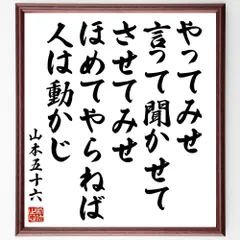 やってみせ
言って聞かせて
させてみせ
ほめてやらねば
人は動かじ
山本五十六